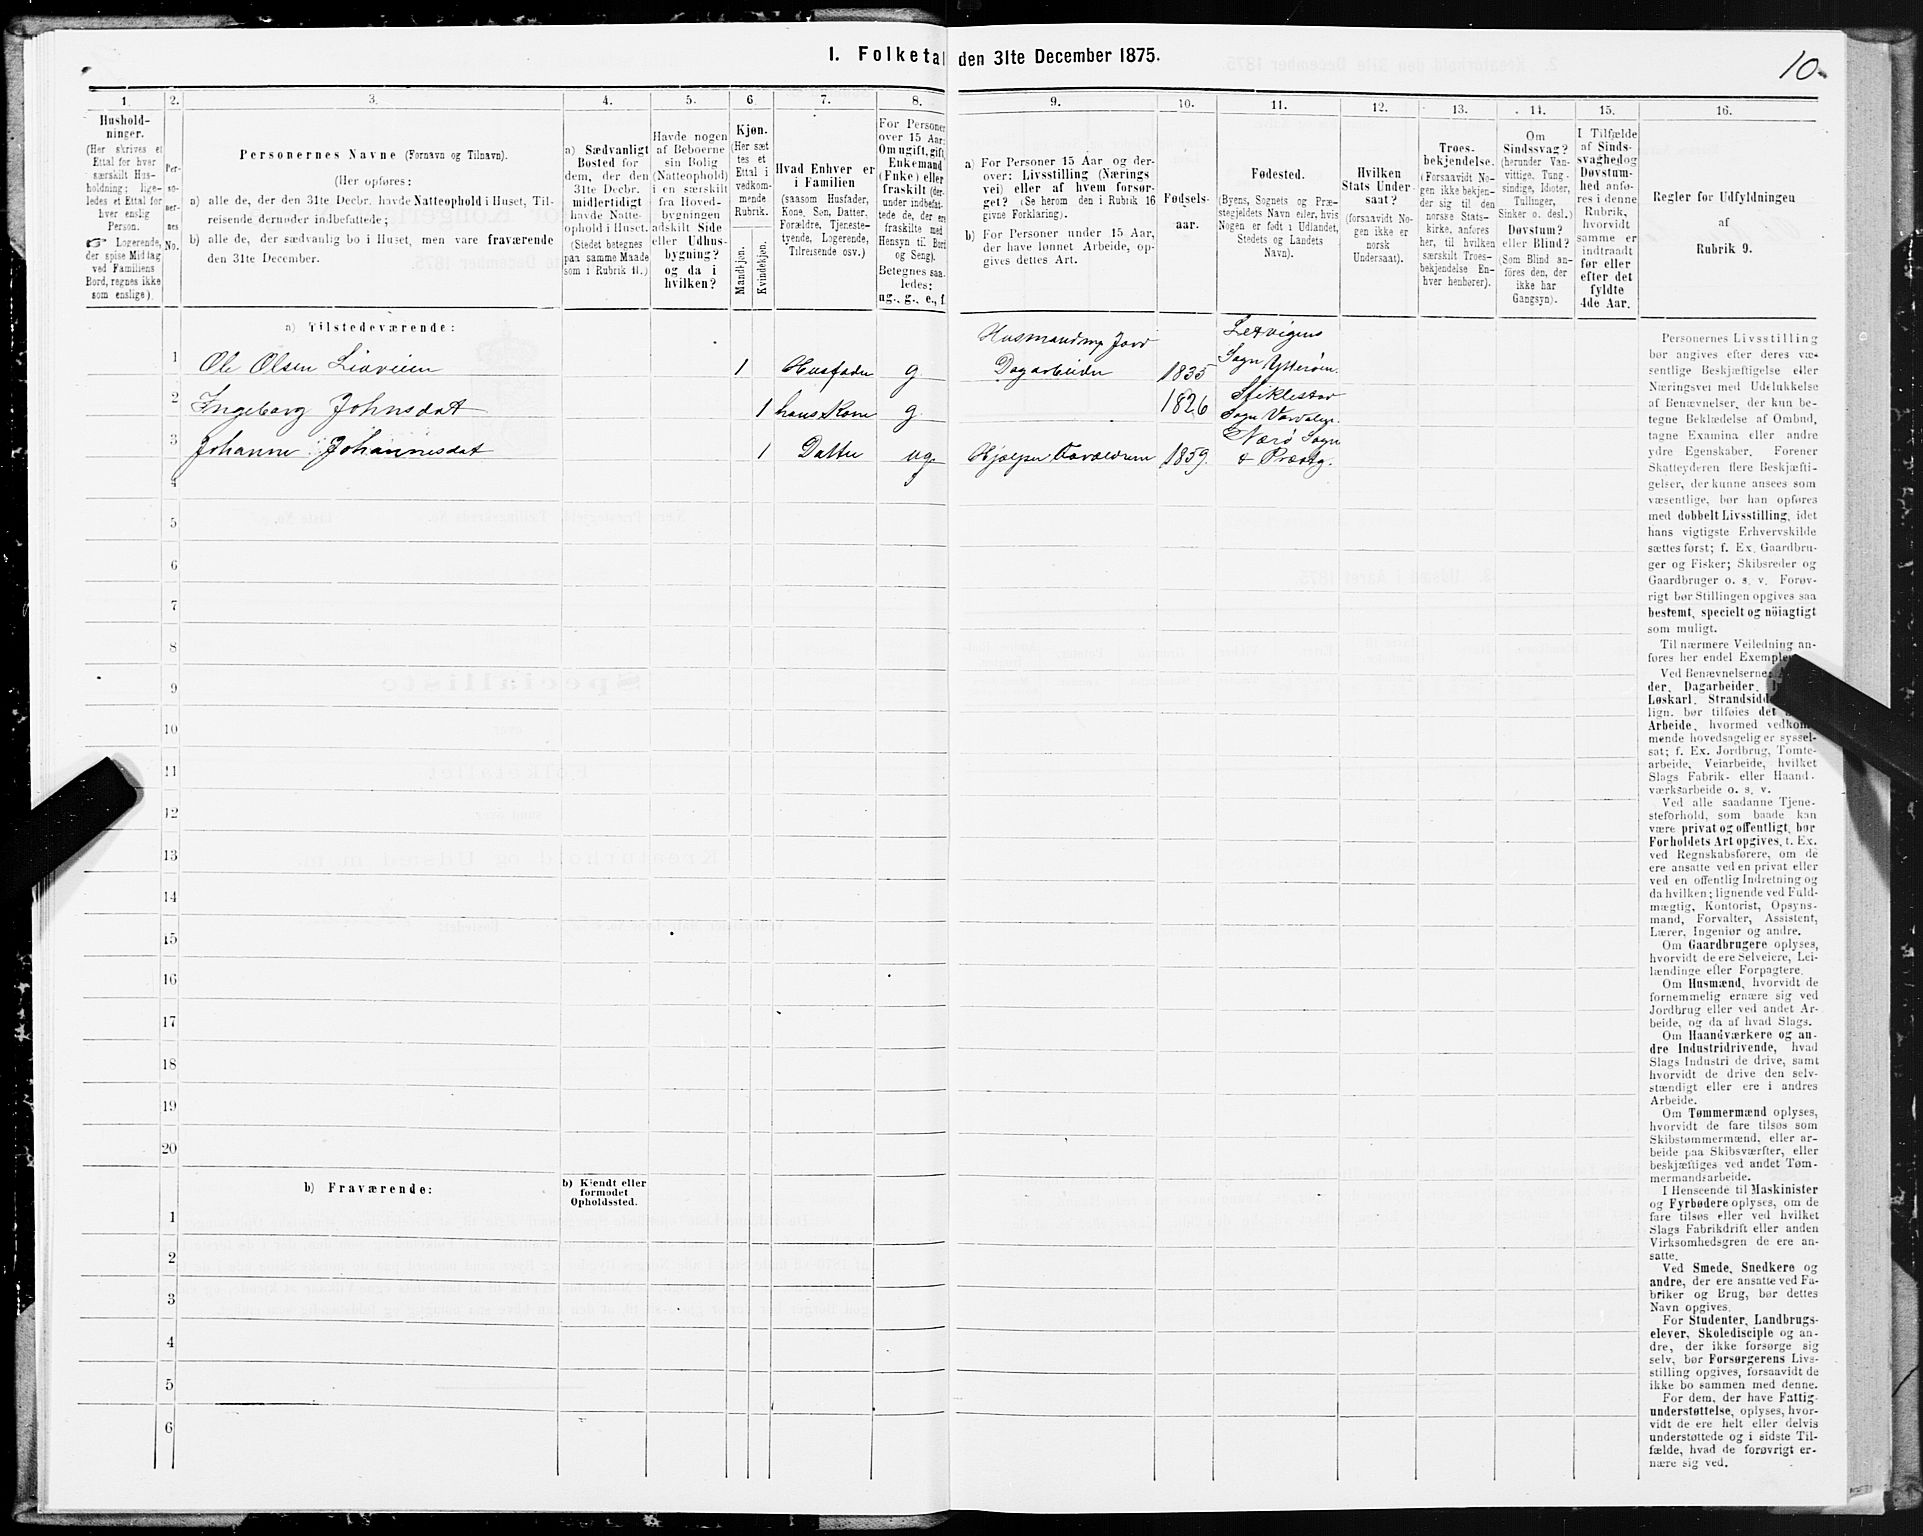 1. Folketal den 31te December 1875.
10.
1. 2. 3. 4. 5. 6. 7. 8. 9. 10. 11. 12. 13. 14. 15. 16.
Hushold-
ninger.
(Her skrives et
Ettal for hver
særskilt Hus-
holdning; lige-
ledes et Ettal for
hver enslig
Person.
☞ Logerende,
der spise Middag
ved Familiens
Bord, regnes ikke
som enslige).
Per-
so-
ner-
nes
No.
Personernes Navne (Fornavn og Tilnavn).
(Her opføres:
a) alle de, der den 31te Decbr. havde Natteophold i Huset, Til-
reisende derunder indbefattede;
b) alle de, der sædvanlig bo i Huset, men vare fraværende
den 31te December.
a) Sædvanligt
Bosted for
dem, der den
31te Decbr.
midlertidigt
havde Natte-
ophold i Huset.
(Stedet betegnes
paa samme Maade
som i Rubrik 11.)
Havde nogen
af Beboerne
sin Bolig
(Natteophold)
i en særskilt
fra Hoved-
bygningen
adskilt Side
eller Udhus-
bygning?
og da i
hvilken?
Kjøn.
(Her sæt
tes et
Ettal i
vedkom-
mende
Rubrik.
Mandkjøn.
Kvindekjøn.
Hvad Enhver er
i Familien
(saasom Husfader,
Kone, Søn, Datter,
Forældre, Tjeneste-
tyende, Logerende,
Tilreisende osv.)
For Personer
over 15 Aar:
Om ugift, gift,
Enkemand
(Enke) eller
fraskilt (der-
under indbefat-
tede de, der ere
fraskilte med
Hensyn til Bord
og Seng).
Betegnes saa-
ledes:
ug., g., e., f.
a) For Personer 15 Aar og der-
over: Livsstilling (Nærings
vei) eller af hvem forsør-
get? (Se herom den i Rubrik 16
givne Forklaring).
b) For Personer under 15 Aar,
der have lønnet Arbeide, op-
gives dettes Art.
Fødsels-
aar.
Fødested.
(Byens, Sognets og Præ-
stegjeldets Navn eller, hvis
Nogen er født i Udlandet,
Stedets og Landets
Navn).
Hvilken
Stats Under-
saat?
(forsaavidt No-
gen ikke er
norsk
Undersaat).
Troes-
bekjendelse.
(Forsaavidt No-
gen ikke bekjen-
der sig til den
norske Stats-
kirke, anføres
her, til hvilken
særskilt Troes-
bekjendelse En-
hver henhører).
Om
Sindssvag?
(herunder Van-
vittige, Tung-
sindige, Idioter,
Tullinger,
Sinker o. desl.)
Døvstum?
eller Blind?
(Som Blind an-
føres den, der
ikke har
Gangsyn).
I Tilfælde
af Sinds-
svaghed og
Døvstum-
hed anfø-
res i denne
Rubrik,
hvorvidt
samme er
indtraadt
før eller
efter det
fyldte
4de Aar.
Regler for Udfyldningen
af
Rubrik 9.
a) Tilstedeværende:
Husmand m Jord Sogn
1 Ole Olsen 1 Husfader g Dagarbeider 1835 Sogn Ytterøen.
2 Ingeborg Johnsdat 1 hans Kone g 1826 Stiklestad
Sogn
3 Johanne Johannesdat 1 Datter ug. Hjælper 1859. Nærø Sogn
& Præstg.
4
5
6
7
8
9
10
11
12
13
14
15
16
17
18
19
20
b) Fraværende:
b) Kjendt eller
formodet
Opholdssted.
1
2
3
4
5
6
Personernes Livsstilling
bør angives efter deres væ-
sentlige Beskjæftigelse eller
Næringsvei med Udelukkelse
af Benævnelser, der kun be-
tegne Beklædelse af Ombud,
tagne Examina eller andre
ydre Egenskaber. Forener
Skatteyderen flere Beskjæfti-
gelser, der kunne ansees som
væsentlige, bør han opføres
med dobbelt Livsstilling, idet
hans vigtigste Erhvervskilde
sættes først; f. Ex. Gaardbru-
ger og Fisker; Skibsreder og
Gaardbruger o. s. v. Forøv-
rigt bør Stillingen opgives saa
bestemt, specielt og nöiagtigt
som muligt.
Til nærmere Veiledning an-
føres her endel Exempler
Ved Benævnelserne:
der, Dagarbeider,
Løskarl, Strandsidd
lign. bør tilføies det
Arbeide, hvormed vedkom-
mende hovedsagelig er syssel-
sat; f. Ex. Jordbrug, Tomte-
arbeide, Veiarbeide, hvilket
Slags Fabrik- eller Haand-
værksarbeide o. s. v.
Ved alle saadanne Tjene-
steforhold, som baade kan
være privat og offentligt, bør
Forholdets Art opgives, f. Ex.
ved Regnskabsførere, om de
ere ansatte ved en privat eller
ved en offentlig Indretning og
da hvilken; lignende ved Fuld-
mægtig, Kontorist, Opsyns-
mand, Forvalter, Assistent,
Lærer, Ingeniør og andre.
Om Gaardbrugere oplyses,
hvorvidt de ere Selveiere, Lei-
lændinge eller Forpagtere.
Om Husmænd, hvorvidt de
fornemmelig ernære sig ved
Jordbrug eller ved andet Ar-
beide, og da af hvad Slags.
Om Haandværkere og an-
dre Industridrivende, hvad
Slags Industri de drive, samt
hvorvidt de drive den selv-
stændigt eller ere i andres
Arbeide.
Om Tømmermænd oplyses,
hvorvidt de fare tilsøs som
Skibstømmermænd, eller ar-
beide paa Skibsværfter, eller
beskjæftiges ved andet Tøm-
mermandsarbeide.
I Henseende til Maskinister
og Fyrbødere oplyses, om de
fare tilsøs eller ved hvilket
Slags Fabrikdrift eller anden
Virksomhedsgren de ere an-
satte.
Ved Smede, Snedkere og
andre, der ere ansatte ved Fa-
briker og Brug, bør dettes
Navn opgives.
For Studenter, Landbrugs-
elever, Skoledisciple og an-
dre, der ikke forsørge sig
selv, bør Forsørgerens Livs-
stilling opgives, forsaavidt de
ikke bo sammen med denne.
For dem, der have Fattig-
understøttelse, oplyses, hvor-
vidt de ere helt eller delvis
understøttede og i sidste Til-
fælde, hvad de forøvrigt er-
nære sig ved.